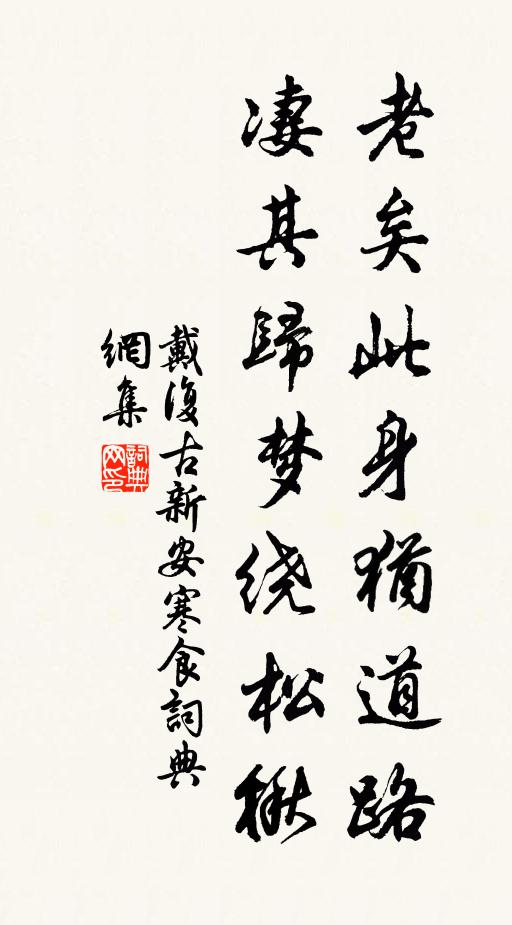 老矣此身猶道路
凄其歸梦绕松楸
戴復古新安寒食詞典
網集
詞典網印